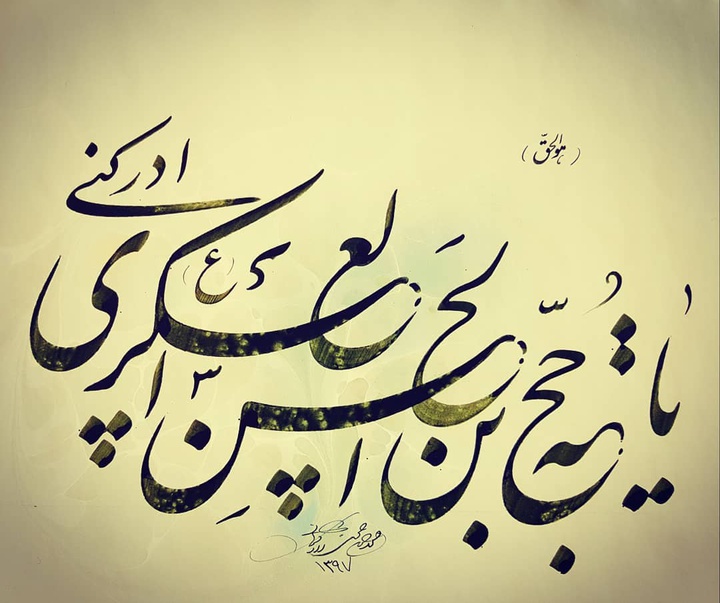 (هوالحق)
یا حجّة بن الحسن العسکری (ع) ادرکنی
۱۳۹۷